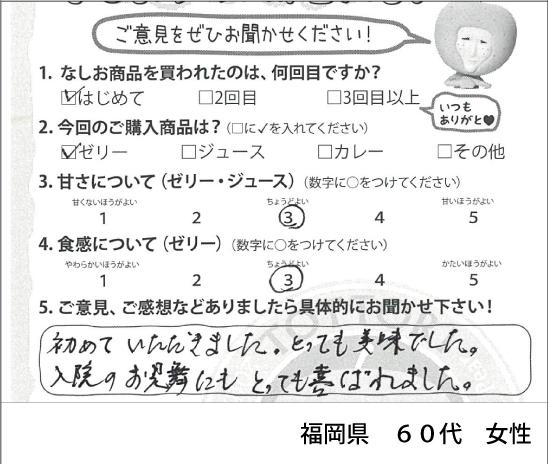 ご意見をぜひお聞かせください!
1. なしお商品を買われたのは、何回目ですか?
☑はじめて □2回目 □3回目以上
いつも
ありがと♥
2. 今回のご購入商品は? (□に✓を入れてください)
☑ゼリー □ジュース □カレー □その他
3. 甘さについて (ゼリー・ジュース) (数字に○をつけてください)
甘くないほうがよい ちょうどよい 甘いほうがよい
1 2 3 4 5
4. 食感について (ゼリー) (数字に○をつけてください)
やわらかいほうがよい ちょうどよい かたいほうがよい
1 2 3 4 5
5. ご意見、ご感想などありましたら具体的にお聞かせ下さい!
初めていただきました。とっても美味でした。
入院のお見舞にもとっても喜ばれました。
福岡県 60代 女性